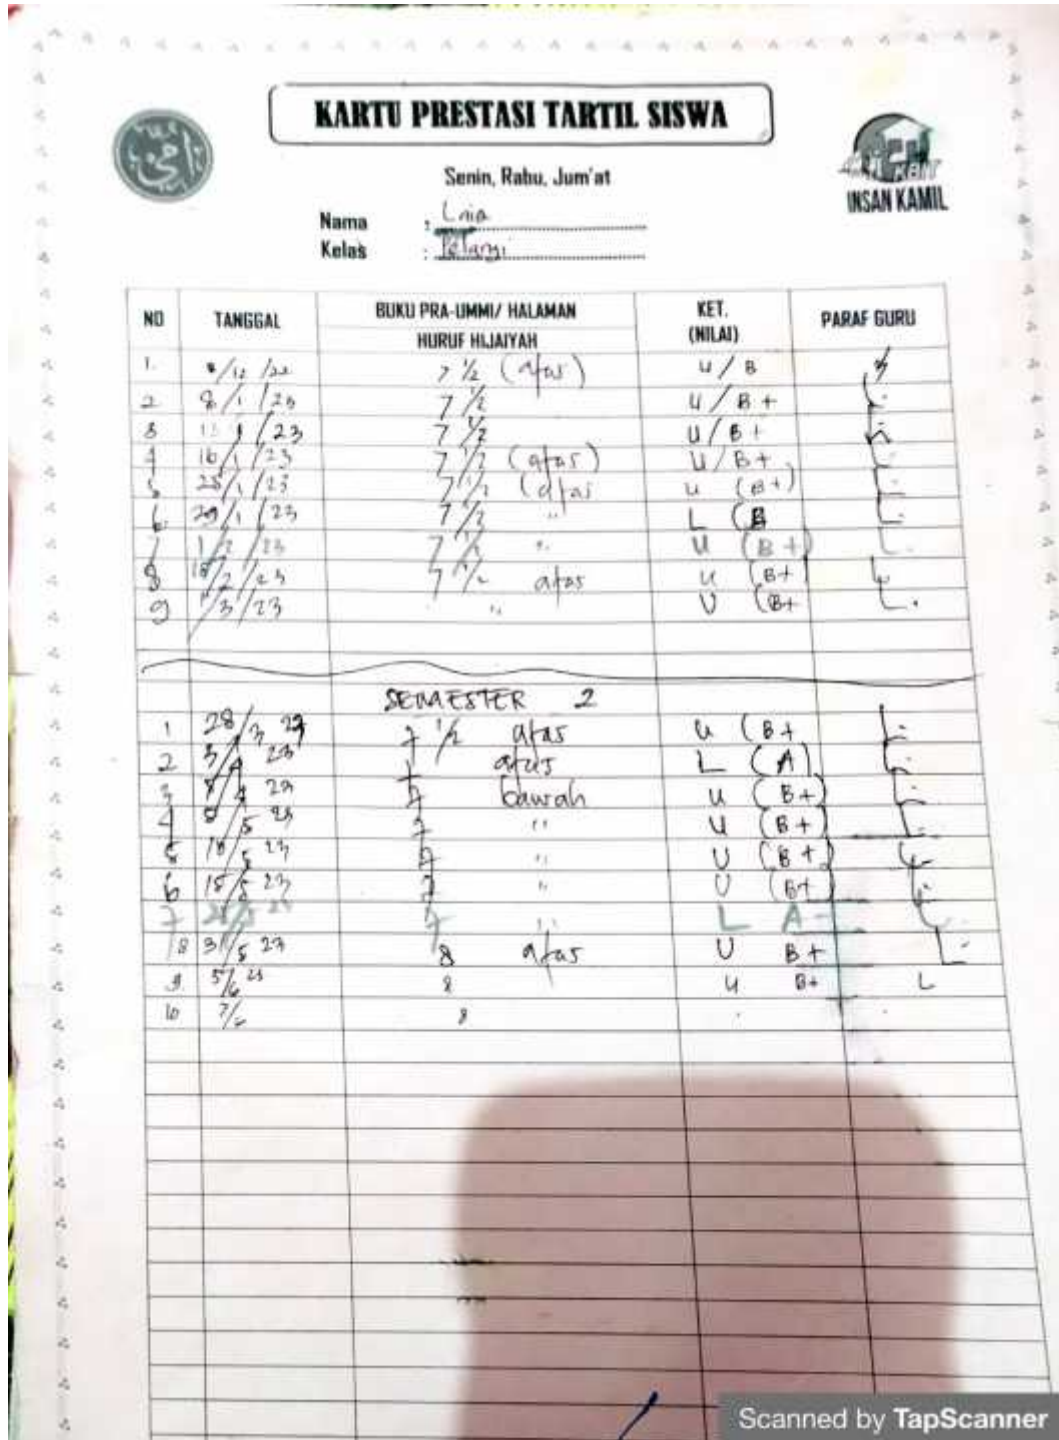 KARTU PRESTASI TARTIL SISWA
KBIT
INSAN KAMIL
Senin, Rabu, Jum'at
Nama :
Kelas : Pelangi
NO TANGGAL BUKU PRA-UMMI/ HALAMAN KET. (NILAI) PARAF GURU
HURUF HIJAIYAH
1. /12 /22 7 1/2 (atas) U / B
2 8/1/23 7 1/2 U / B+
3 /1/23 7 1/2 U / B+
4 16/1/23 7 1/2 (atas) U / B+
5 25/1/23 7 1/2 (atas U (B+)
6. 29/1/23 7 1/2 " L (B
7 1/2/23 7 1/2 " U (B+)
8 15/2/23 7 1/2 atas U (B+
9 1/3/23 " U (B+
SEMESTER 2
1 28/3 23 7 1/2 atas U (B+
2 3/4 23 atas L (A)
3 8/4 23 7 bawah U (B+)
4 8/5 23 7 " U (B+)
5 10/5 23 7 " U (B+)
6 15/5 23 7 " U (B+)
7 7 " L A-
8 31/5 23 8 atas U B+
9. 5/6 23 8 U B+ L
10 7/6 8
Scanned by TapScanner